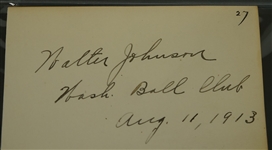 27
Walter Johnson
Wash. Ball Club
Aug. 11, 1913